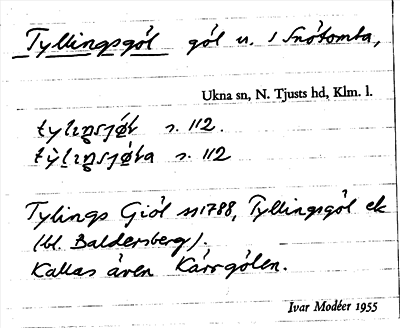 Tyllingsgöl göl u. 1 Snötomta,
Ukna sn, N. Tjusts hd, Klm. l.
s. 112.
s. 112
Tylings Giöl 1788, Tyllingsgöl ek
(bl. Baldersberg).
Kallas även Kärrgölen.
Ivar Modéer 1955